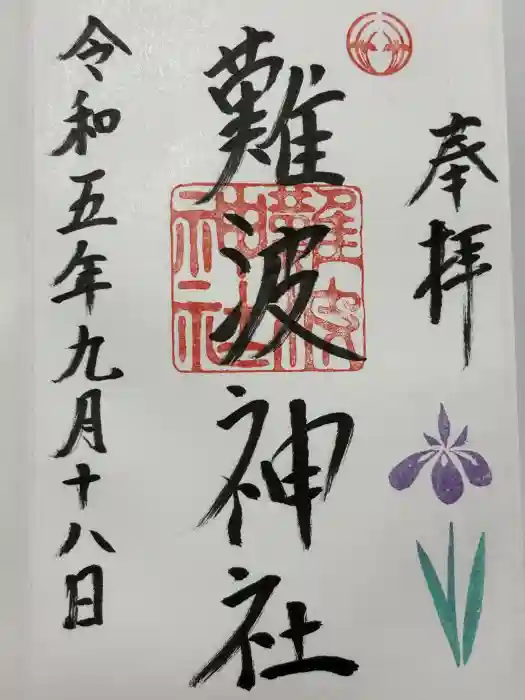 奉拝
難波神社
難波神社
令和五年九月十八日